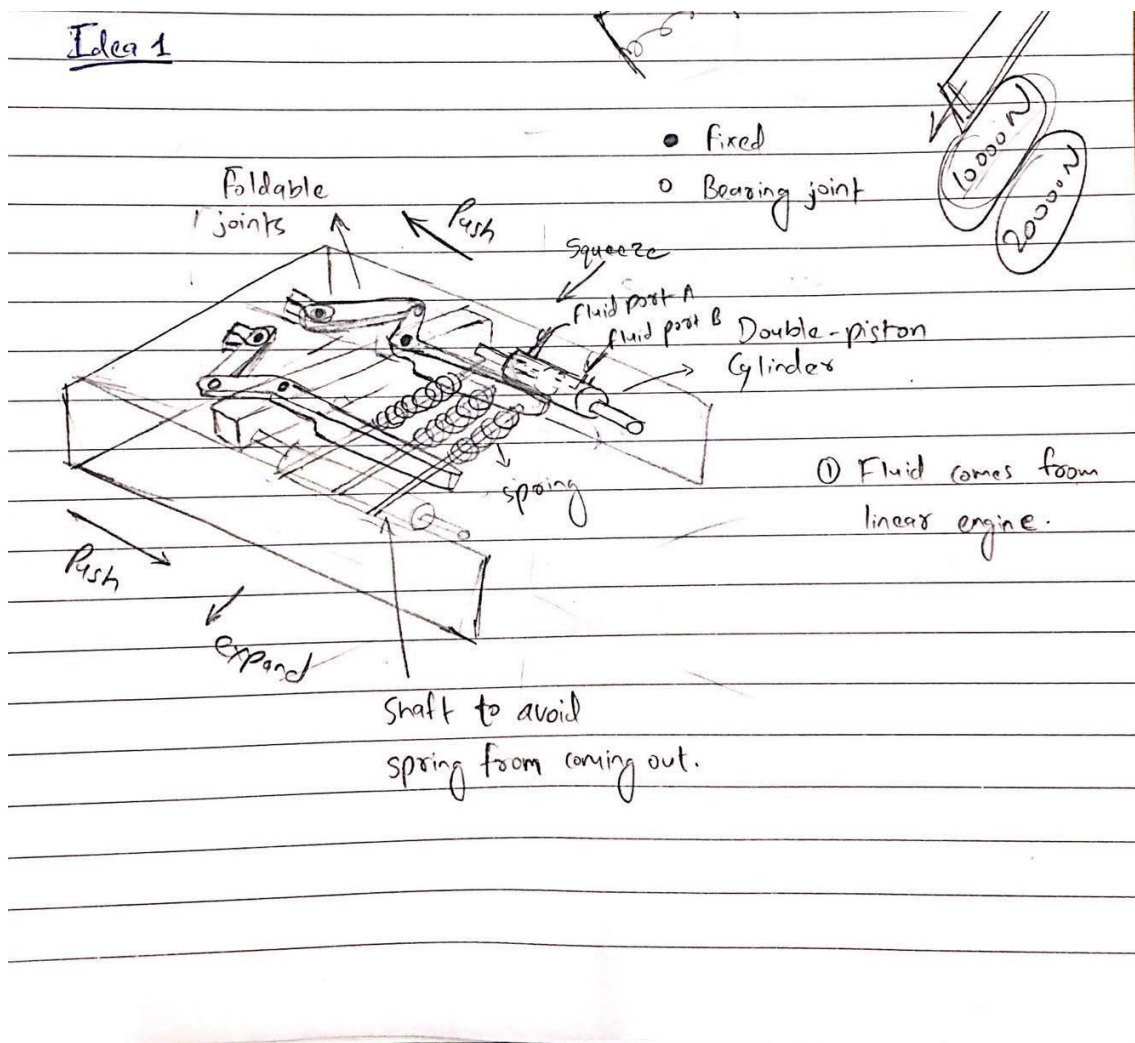 Idea 1
10000 N
20000 N
Fixed
Bearing joint
Foldable
joints
Push
Squeeze
fluid port A
fluid port B
Double-piston
Cylinder
spring
① Fluid comes from
linear engine.
Push
expand
Shaft to avoid
spring from coming out.